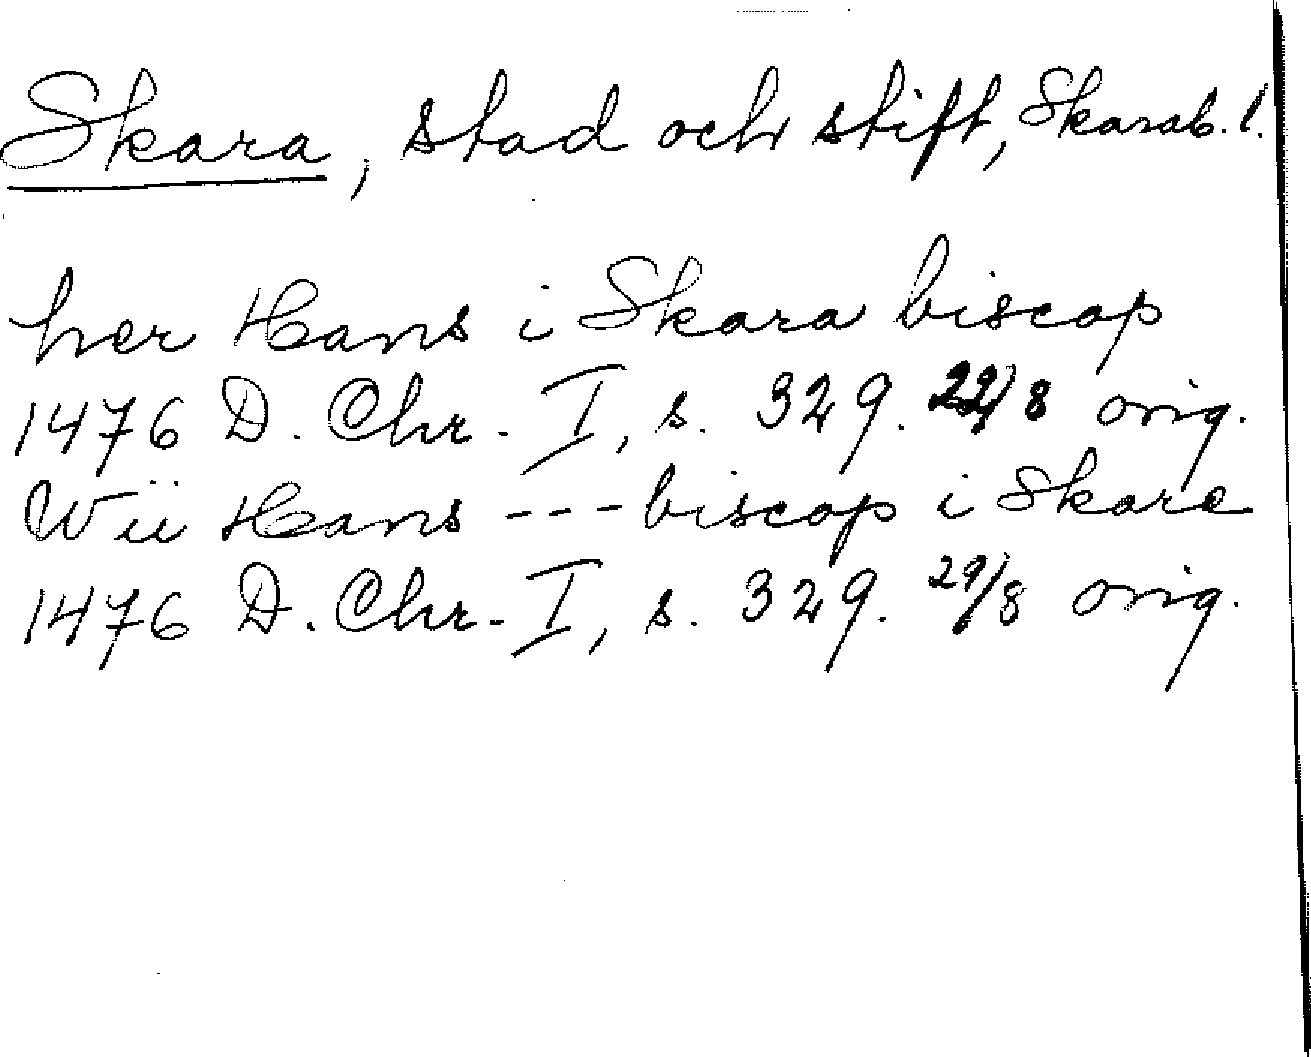 Skara, stad och stift, Skarab. l.
her Hans i Skara biscop
1476 D. Chr. I, s. 329. 29/8 orig.
Wii Hans --- biscop i Skare
1476 D. Chr. I, s. 329. 29/8 orig.